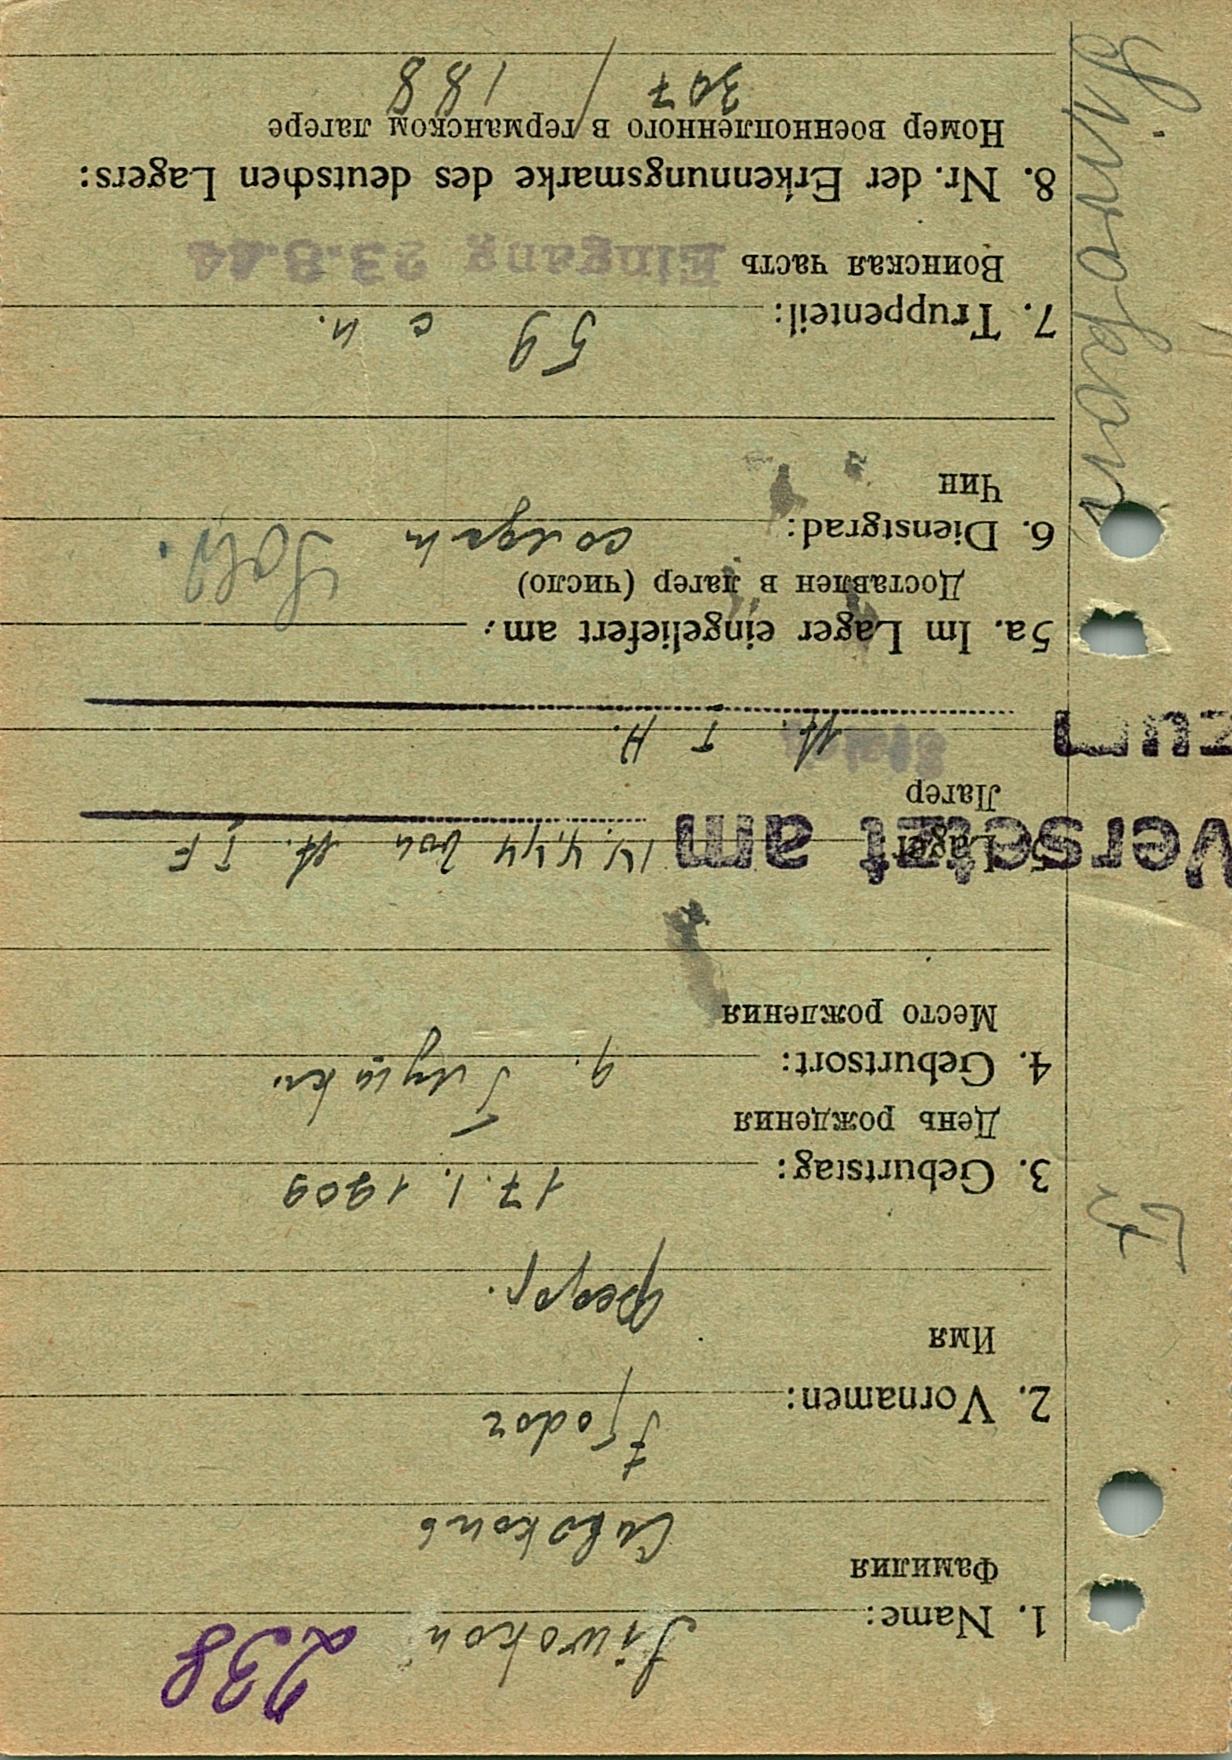 238
1. Name: Siwokon
Фамилия
Сивоконь
2. Vornamen: Fjodor
Имя
Федор.
3. Geburtstag: 17. 1. 1909
День рождения
4. Geburtsort:
Место рождения
5. Lager: 14.4.44 von St. I F
Versetzt am
Лагер
Stalag
zum
5a. Im Lager eingeliefert am:
Доставлен в лагер (число)
6. Dienstgrad: солдат Sold.
Чин
7. Truppenteil: 59 с п.
Воинская часть Eingang 23.8.44
8. Nr. der Erkennungsmarke des deutschen Lagers:
Номер военнопленного в германском лагере
307 / 188
Siwokon